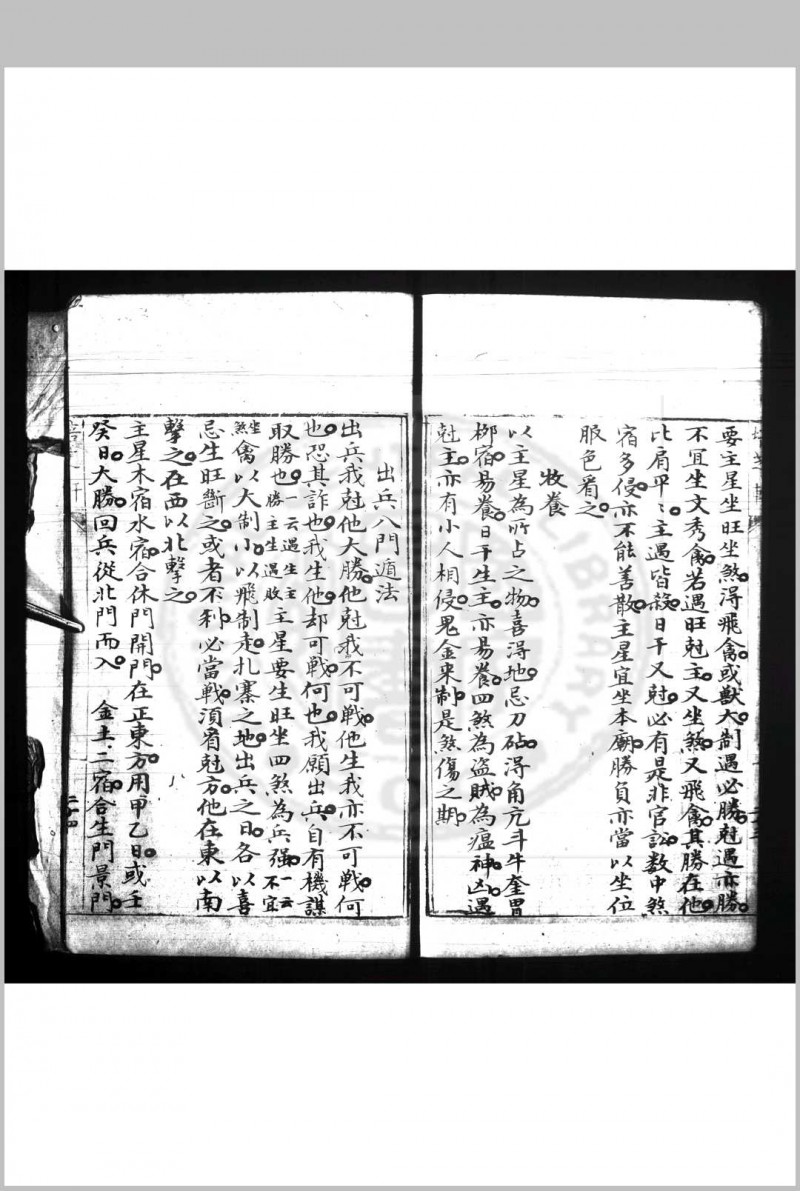 要主星坐旺坐煞。得飛禽。或獸大制遇必勝。尅遇亦勝。
不宜坐文秀禽。若遇旺尅主。又坐煞。又飛禽。其勝在他。
比肩平〻主遇皆殺。日干又尅。必有是非官訟。数中煞
宿多侵。亦不能善散。主星宜坐本廟。勝負亦當以坐位
服色看之。
牧養
以主星為所占之物。喜得地。忌刀砧。得角亢斗牛奎胃
柳宿易養。日干生主。亦易養。四煞為盗賊。為瘟神。凶遇
尅主。亦有小人相侵。鬼金來制。是煞傷之期。
出兵八門遁法
出兵我尅他大勝。他尅我不可戰。他生我亦不可戰。何
也。恐其詐也。我生他却可戰。何也。我願出兵。自有機謀
取勝也。一云遇生主勝主生遇敗主星要生旺坐四煞為兵强。一云不宜
坐煞禽以大制小。以飛制走。扎寨之地。出兵之日。各以喜
忌生旺斷之。或者不利。必當戰。須看尅方。他在東以南
擊之。在西以北擊之。
主星木宿水宿。合休門開門。在正東方。用甲乙日。或壬
癸日。大勝。回兵從北門而入。 金土二宿。合生門景門。
二十四